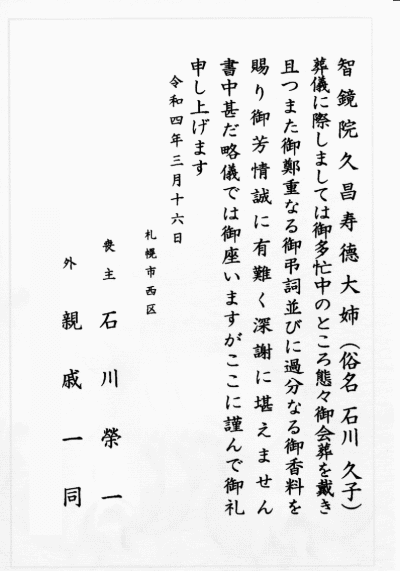 智鏡院久昌寿徳大姉（俗名 石川 久子）
葬儀に際しましては御多忙中のところ態々御会葬を戴き
且つまた御鄭重なる御弔詞並びに過分なる御香料を
賜り御芳情誠に有難く深謝に堪えません
書中甚だ略儀では御座いますがここに謹んで御礼
申し上げます
令和四年三月十六日
札幌市西区
喪主 石川榮一
外 親戚一同